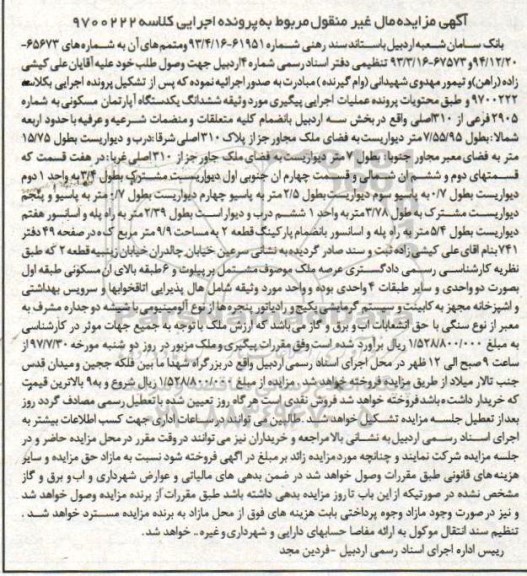 آگهی مزایده مال غیر منقول مربوط به پرونده اجرایی کلاسه ۹۷۰۰۲۲۲
بانک سامان شعبه اردبیل باستناد سند رهنی شماره ۶۱۹۵۱-۹۳/۴/۱۶ ومتمم های آن به شماره های ۶۵۶۷۳-
۹۴/۱۲/۲۰ و ۶۷۵۷۳-۹۳/۳/۱۶ تنظیمی دفتر اسناد رسمی شماره ۴ اردبیل جهت وصول طلب خود علیه آقایان علی کیشی
زاده (راهن) و تیمور مهدوی شهیدانی (وام گیرنده) مبادرت به صدور اجرائیه نموده که پس از تشکیل پرونده اجرایی بکلاسه
۹۷۰۰۲۲۲ و طبق محتویات پرونده عملیات اجرایی پیگیری مورد وثیقه ششدانگ یکدستگاه آپارتمان مسکونی به شماره
۲۹۰۵ فرعی از ۳۱۰ اصلی واقع در بخش سه اردبیل بانضمام کلیه متعلقات و منضمات شرعیه و عرفیه با حدود اربعه
شمالا: بطول ۷/۵۵/۹۵ متر دیواریست به فضای ملک مجاور جز از پلاک ۳۱۰ اصلی شرقا: درب و دیواریست بطول ۱۵/۷۵
متر به فضای معبر مجاور جنوبا بطول ۷ متر دیواریست به فضای ملک جاور جز از ۳۱۰ اصلی غربا: در هفت قسمت که
قسمتهای دوم و ششم آن شمالی و قسمت چهارم آن جنوبی اول دیواریست مشترک بطول ۳/۴ به واحد ۱ دوم
دیواریست بطول ۰/۷ به پاسیو سوم دیواریست بطول ۲/۵ متر به پاسیو چهارم دیواریست بطول ۰/۷ متر به پاسیو و پنجم
دیواریست مشترک به طول ۳/۷۸ متر به واحد ۱ ششم درب و دیوار است بطول ۲/۳۹ متر به راه پله و آسانسور هفتم
دیواریست بطول ۵/۴ متر به راه پله و اسانسور بانضمام پارکینگ قطعه ۲ به مساحت ۹/۹ متر مربع که در صفحه ۴۹ دفتر
۷۴۱ بنام اقای علی کیشی زاده ثبت و سند صادر گردیده به نشانی سرعین خیابان چالدران خیابان زینبیه قطعه ۲ که طبق
نظریه کارشناسی رسمی دادگستری عرصه ملک موصوف مشتمل بر پیلوت و ۶ طبقه بالای آن مسکونی طبقه اول
بصورت دو واحدی و سایر طبقات ۴ واحدی بوده و واحد مورد وثیقه شامل هال پذیرایی اتاقخوابها و سرویس بهداشتی
و اشپزخانه مجهز به کابینت و سیستم گرمایش پکیج و رادیاتور پنجره ها از نوع آلومینیومی با شیشه دو جداره مشرف به
معبر از نوع سنگی با حق انشعابات آب و برق و گاز می باشد که ارزش ملک با توجه به جمیع جهات موثر در کارشناسی
به مبلغ ۱/۵۲۸/۸۰۰/۰۰۰ ریال برآورد شده است وفق مقررات پیگیری و ملک مزبور در روز دو شنبه مورخه ۹۷/۷/۳۰ از
ساعت ۹ صبح الی ۱۲ ظهر در محل اجرای اسناد رسمی اردبیل واقع در بزرگراه شهدا ما بین فلکه ججین و میدان قدس
جنب تالار میلاد از طریق مزایده فروخته خواهد شد. مزایده از مبلغ ۱/۵۲۸/۸۰۰/۰۰۰ ریال شروع و به ۹ بالاترین قیمت
که خریدار داشته باشد فروخته خواهد شد فروش نقدی است هر گاه روز تعیین شده با تعطیل رسمی مصادف گردد روز
بعد از تعطیل جلسه مزایده تشکیل خواهد شد. طالبین می توانند در ساعات اداری جهت کسب اطلاعات بیشتر به
اجرای اسناد رسمی اردبیل به نشانی بالا مراجعه و خریداران نیز می توانند در وقت مقرر در محل مزایده حاضر و در
جلسه مزایده شرکت نمایند و چنانچه مورد مزایده زائد بر مبلغ در آگهی فروخته شود نسبت به مازاد حق مزایده و سایر
هزینه های قانونی طبق مقررات وصول خواهد شد در ضمن بدهی های مالیاتی و عوارض شهرداری و اب و برق و گاز
مشخص نشده در صورتیکه از این باب تا روز مزایده بدهی داشته باشد طبق مقررات از برنده مزایده وصول خواهد شد
و نیز در صورت وجود مازاد وجوه پرداختی بابت هزینه های فوق از محل مازاد به برنده مزایده مسترد خواهد شد.
تنظیم سند انتقال موکول به ارائه مفاصا حسابهای دارایی و شهرداری و غیره.. خواهد شد.
رییس اداره اجرای اسناد رسمی اردبیل -فردین مجد